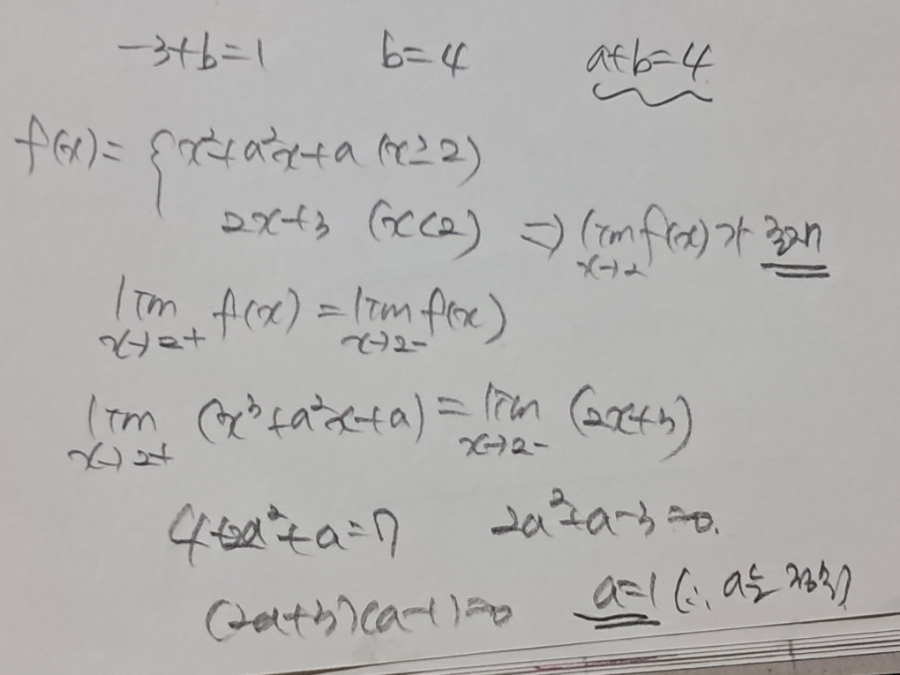 -3+b=1 b=4 a+b=4
f(x)= { x²+a²x+a (x≥2)
2x+3 (x<2) ⇒ lim f(x)가 존재
x→2
lim f(x) = lim f(x)
x→2+ x→2-
lim (x³+a²x+a) = lim (2x+3)
x→2+ x→2-
4+2a²+a=7 2a²+a-3=0.
(2a+3)(a-1)=0 a=1 (∵ a는 정수)